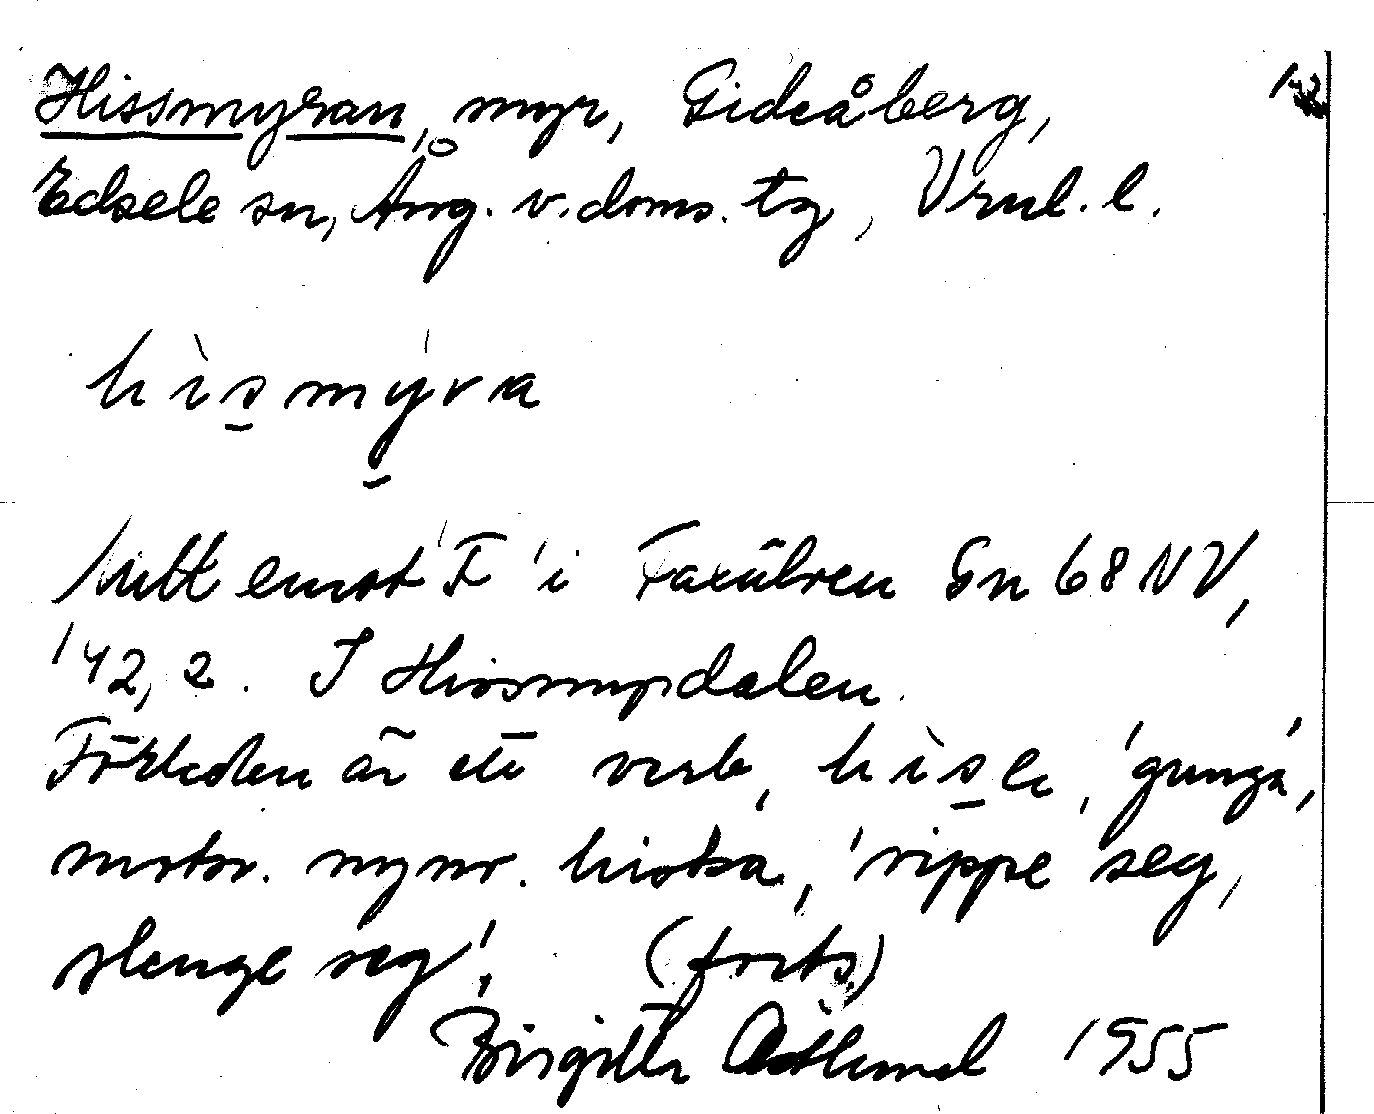 Hissmyran, myr, Gideåberg, 1-2
Edsele sn, Ång. v. doms. tg, Vrnl. l.
hìsmýra
Mitt emot 'F' i Faxälven Gn 68 NV,
'42,2. I Hissmyrdalen.
Förleden är ett verb, hìse, 'gunga',
motsv. nynor. hissa, 'vippe seg,
slenge seg'. (forts)
Birgitta Östlund 1955